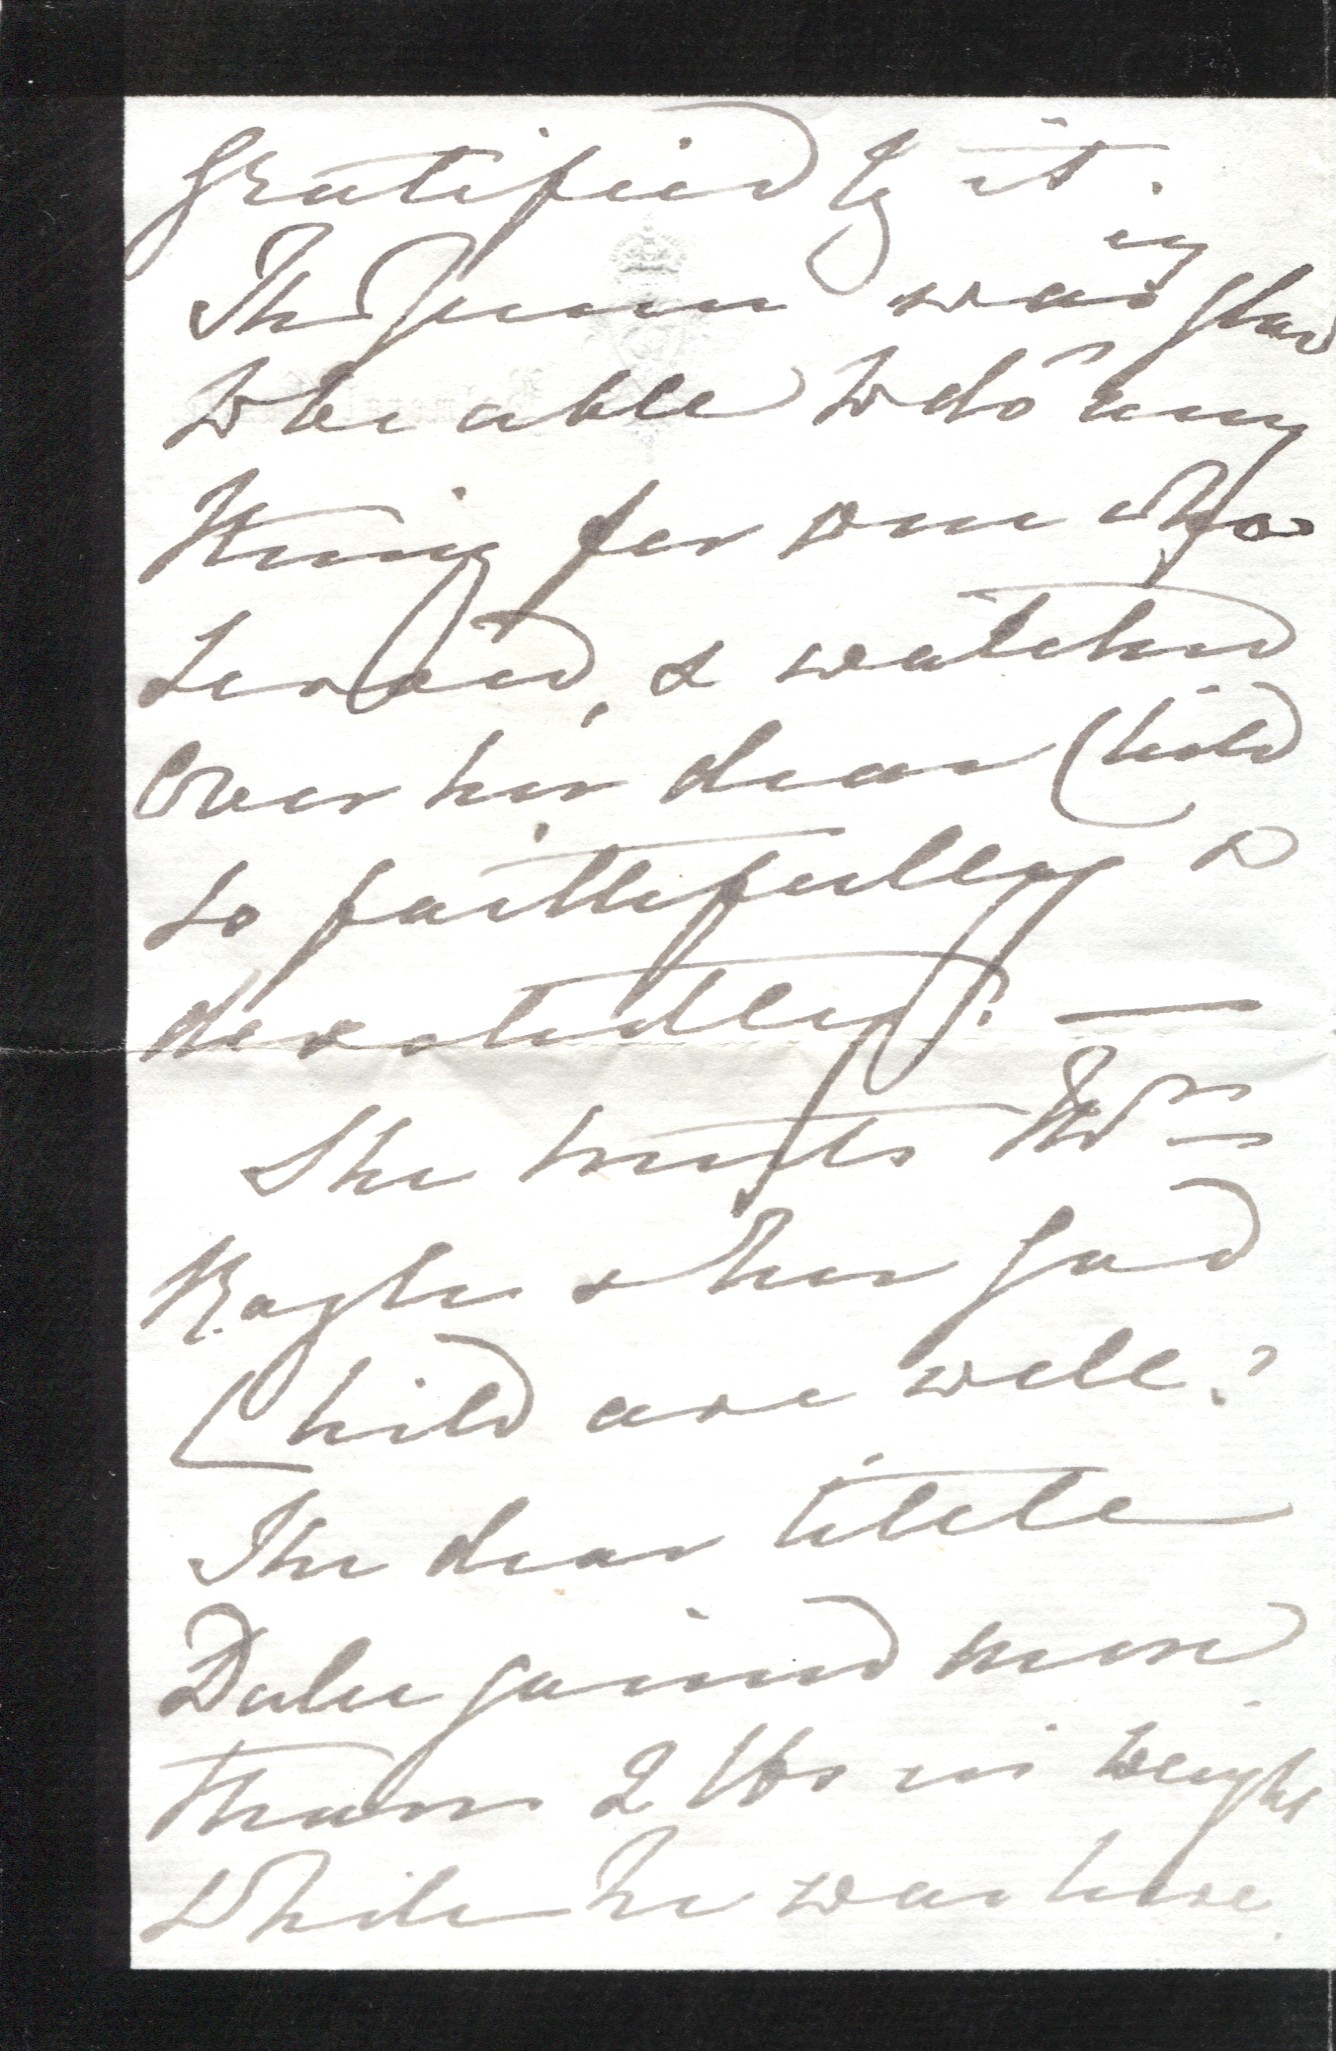 gratified by it.
The Queen was is glad
to be able to do any
thing for one who
served, & watched
over her dear Child
so faithfully &
devotedly. —
She trusts Mrs
Royle & her God
Child are well?
The dear little
Duke gained more
than 2 lbs in weight
while he was here